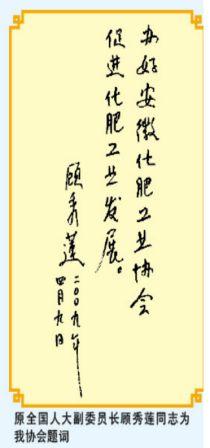 办好安徽化肥工业协会
促进化肥工业发展。
顾秀莲
二〇〇九年
四月九日
原全国人大副委员长顾秀莲同志为
我协会题词